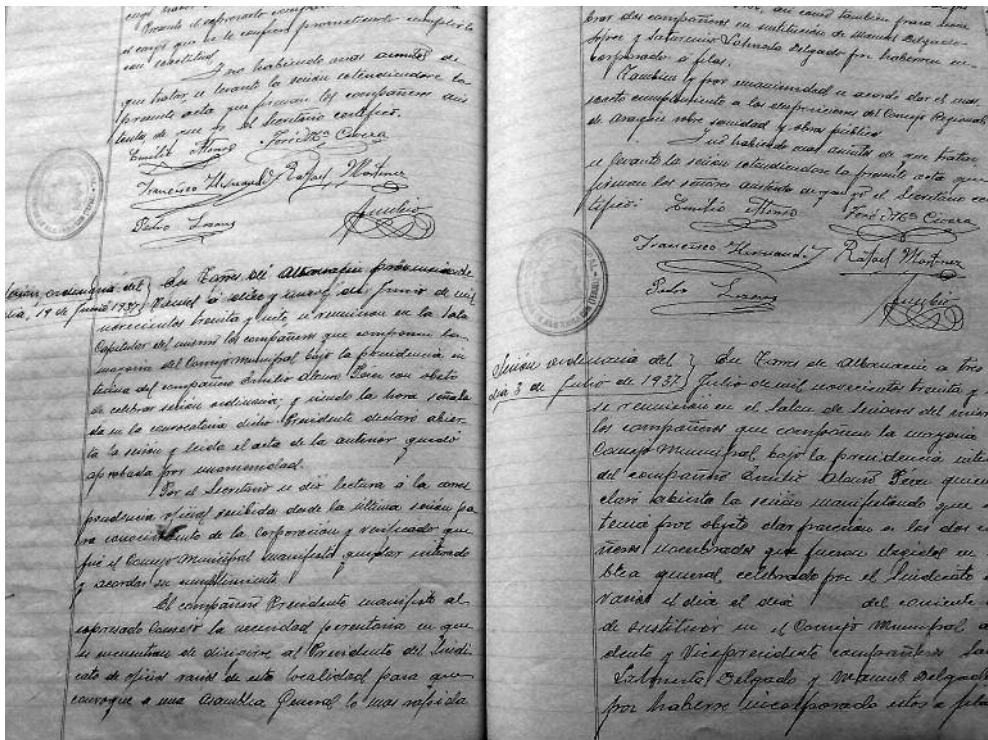 Presente el expresado compañero
el cargo que se le confiere prometiendo cumplirlo
con rectitud.
Y no habiendo mas asuntos de
que tratar, se levanta la sesión extendiendose la
presente acta que firman los compañeros asis
tentes de que yo el Secretario certifico.
Emilio Alonso José Mª Civera
Francisco Hernandez Rafael Martinez
Pedro
Sesión ordinaria del
dia, 19 de Junio 1937
En Torres de Albarracin provincia de
Teruel a diez y nueve de Junio de mil
novecientos treinta y siete, se reunieron en la Sala
Capitular del mismo los compañeros que componen la
mayoria del Consejo Municipal bajo la presidencia in
terina del compañero Emilio Alonso Pérez con objeto
de celebrar sesión ordinaria; y siendo la hora señala
da en la convocatoria dicho Presidente declaró abier
ta la sesión y leida el acta de la anterior quedó
aprobada por unanimidad.
Por el Secretario se dió lectura a la corres
pondencia oficial recibida desde la última sesión pa
ra conocimiento de la Corporación y verificado que
fué el Consejo Municipal manifestó quedar enterado
y acordar su cumplimiento.
El compañero Presidente manifestó al
expresado Consejo la necesidad perentoria en que
se encuentran de dirigirse al Presidente del Sindi
cato de oficios varios de esta localidad para que
convoque a una Asamblea General lo mas rapida
así como también para nom
brar dos compañeros en sustitución de Manuel Delgado
y Saturnino Delgado por haberse in
corporado a filas.
Tambien y por unanimidad se acordó dar el mas
exacto cumplimiento a las disposiciones del Consejo Regional
de Aragón sobre sanidad y obras públicas
Y no habiendo mas asuntos de que tratar
se levanta la sesión extendiendose la presente acta que
firman los señores asistentes de que yo el Secretario cer
tifico: Emilio Alonso José Mª Civera
Francisco Hernandez Rafael Martinez
Pedro
Sesión ordinaria del
dia 3 de Julio de 1937
En Torres de Albarracin a tres
Julio de mil novecientos treinta y
se reunieron en el Salon de Sesiones del mismo
los compañeros que componen la mayoria
Consejo Municipal bajo la presidencia inte
del compañero Emilio Alonso Pérez quien
claró abierta la sesión manifestando que
tenia por objeto dar posesion a los dos
ñeros nombrados que fueron elegidos en
blea general celebrada por el Sindicato
Varios el dia el dia del corriente
de sustituir en el Consejo Municipal
dente y Vicepresidente compañeros
Delgado y Manuel Delgado
por haberse incorporado estos a filas